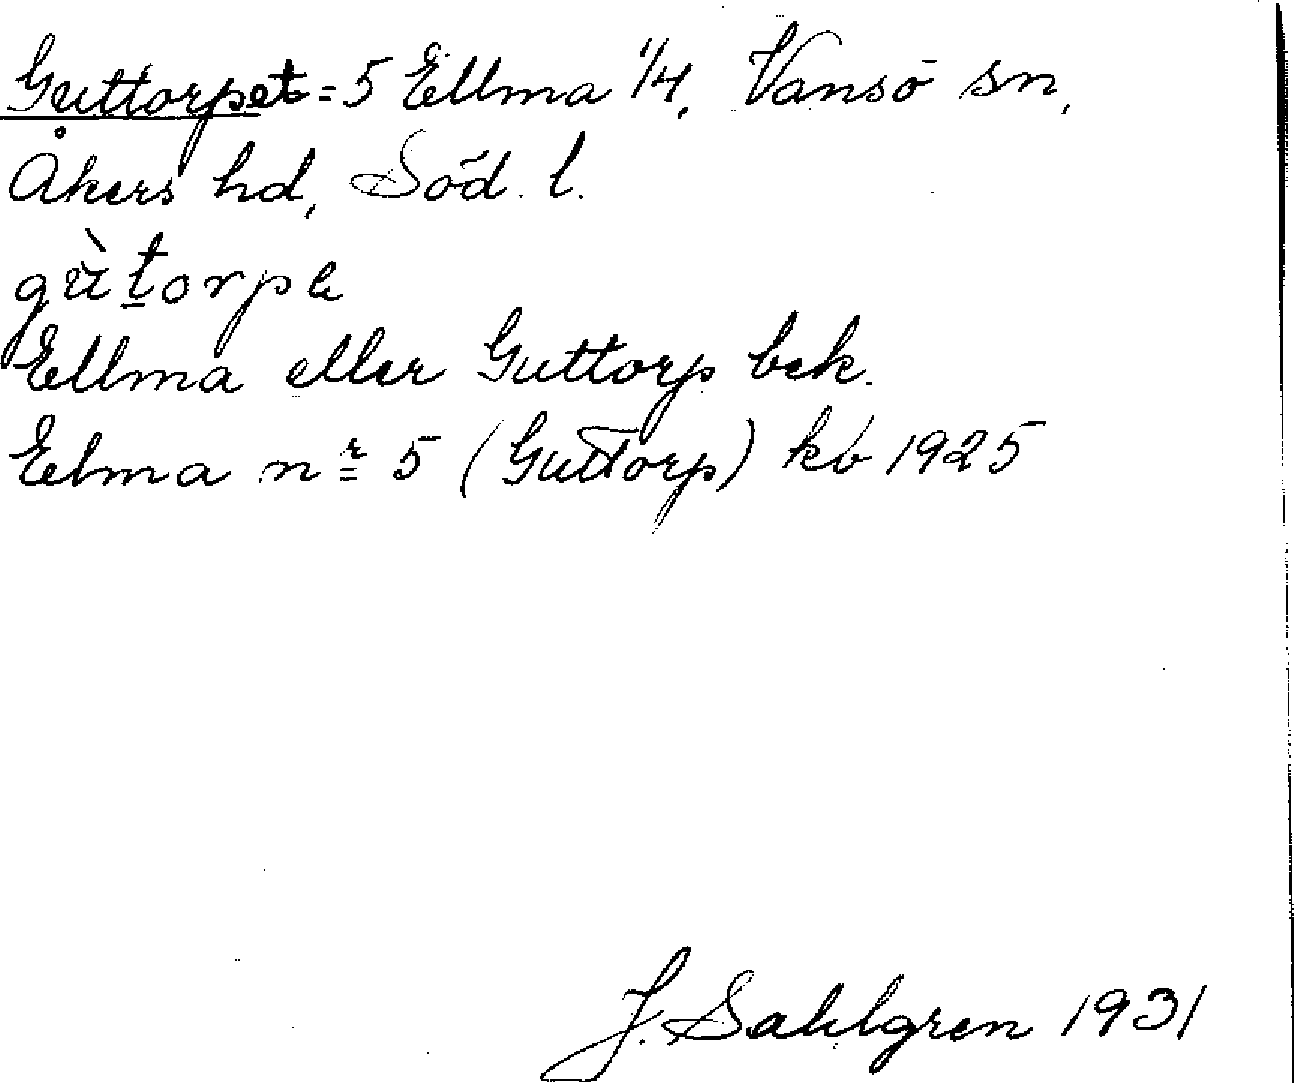 Guttorpet = 5 Ellma 1/4, Vansö sn,
Åkers hd, Söd. l.
gù̱torpe
Ellma eller Guttorp bek.
Elma nr 5 (Guttorp) kb 1925
J. Sahlgren 1931